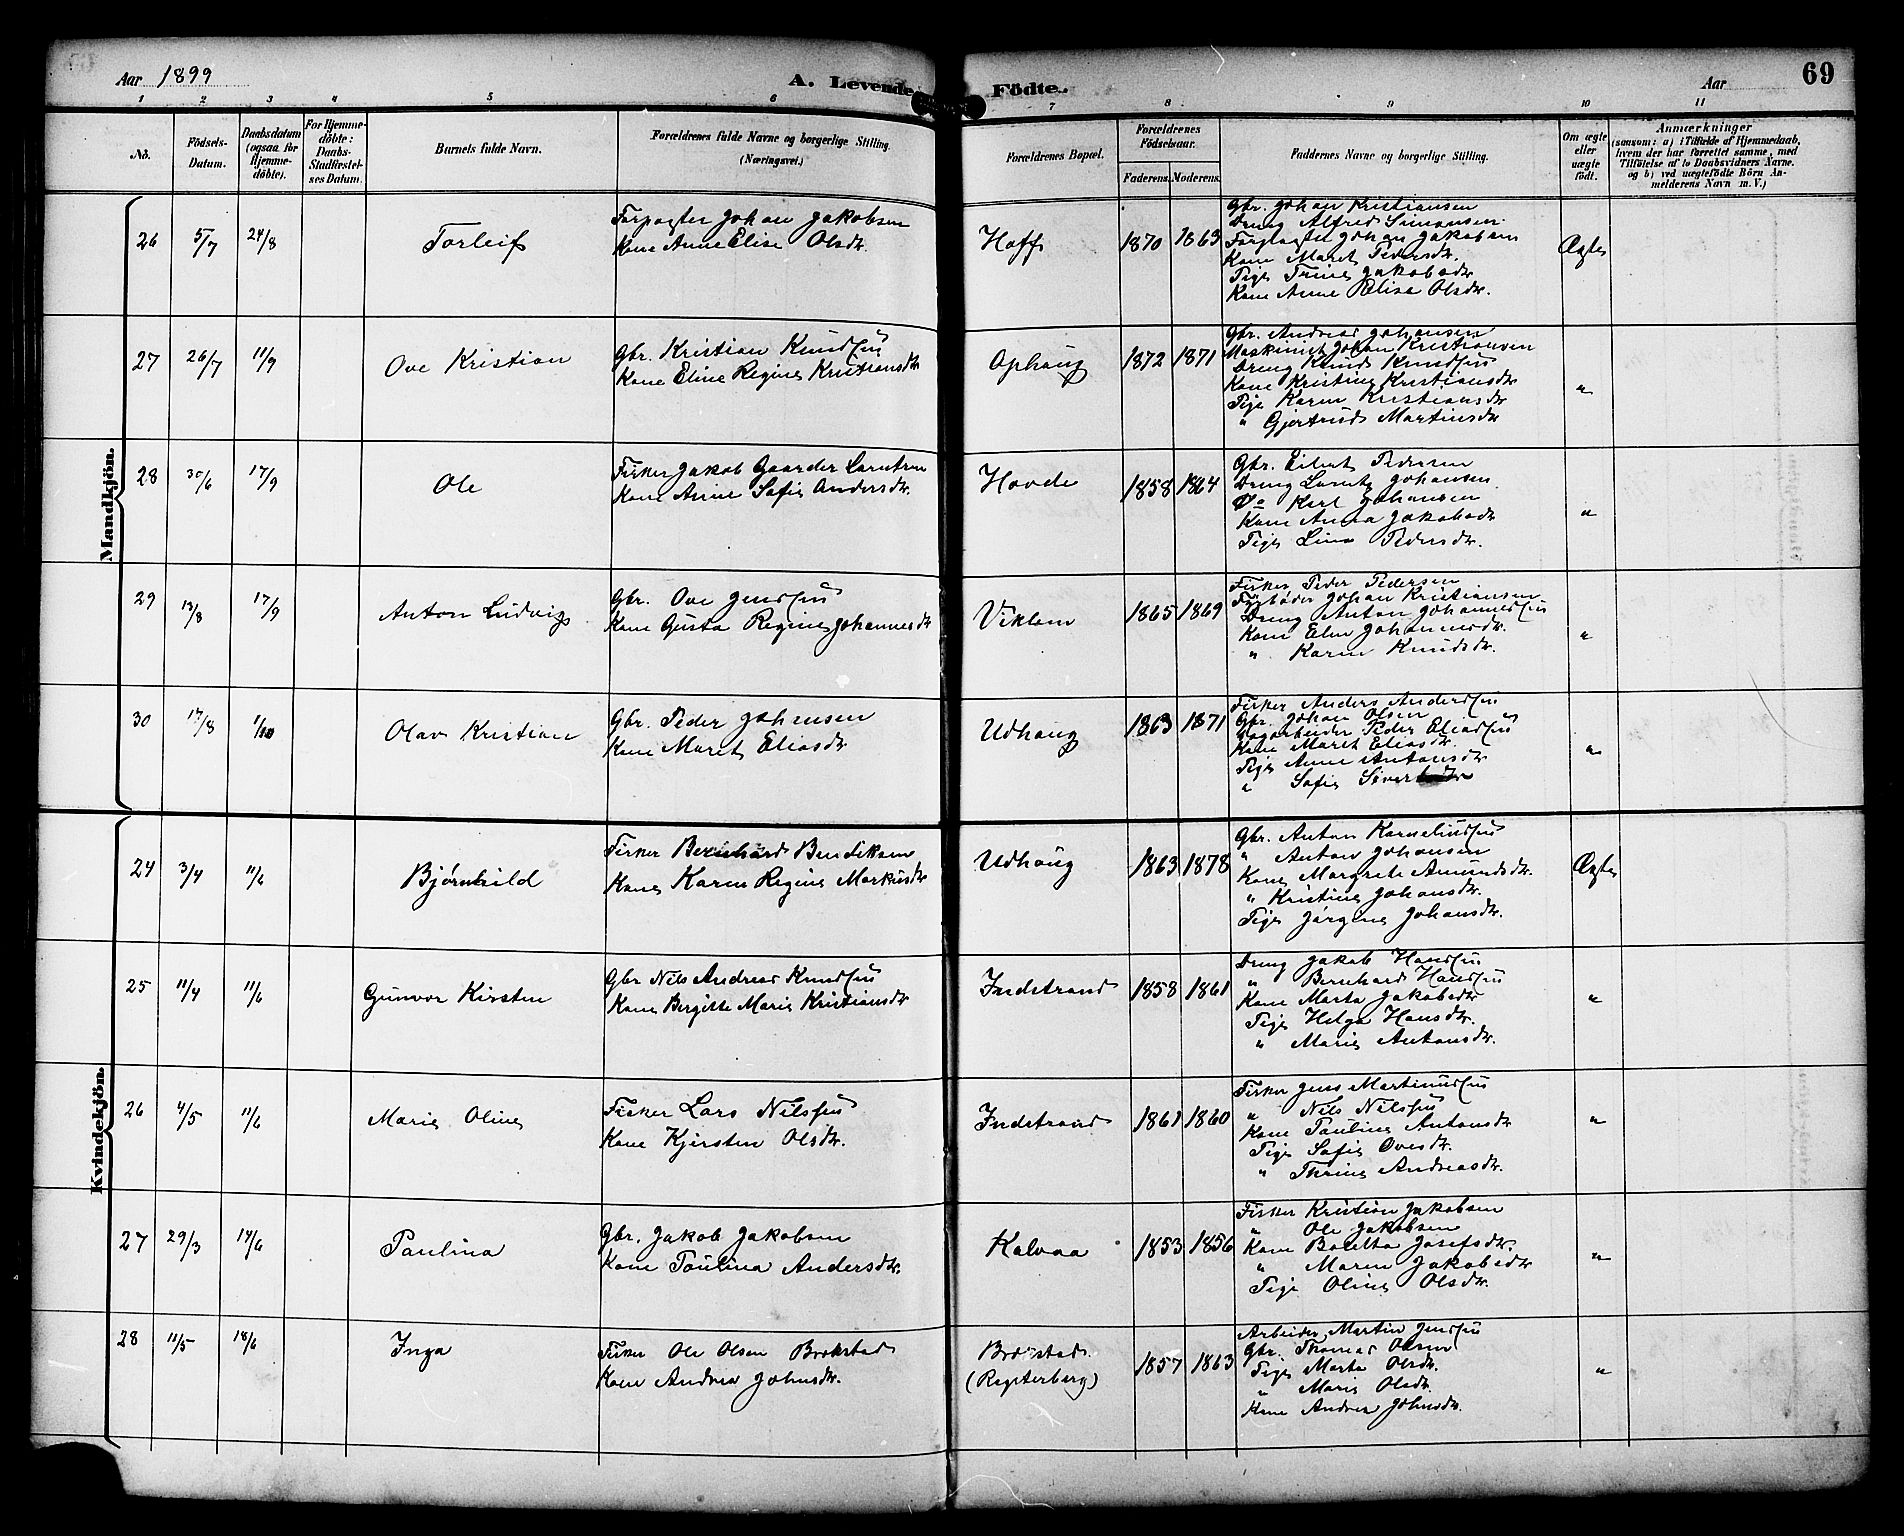 Aar 1899
A. Levende Födte.
Aar 69
1 2 3 4 5 6 7 8 9 10 11
No.
Födsels-Datum.
Daabsdatum (ogsaa for Hjemmedöbte).
For Hjemmedöbte: Daabs-Stadfæstelses Datum.
Barnets fulde Navn.
Forældrenes fulde Navne og borgerlige Stilling. (Næringsvei.)
Forældrenes Bopæl.
Forældrenes Födselsaar.
Faderens. Moderens.
Faddernes Navne og borgerlige Stilling.
Om ægte eller uægte födt.
Anmærkninger
(saasom: a) i Tilfælde af Hjemmedaab, hvem der har forrettet samme, med Tilföielse af to Daabsvidners Navne. og b) ved uægtefödte Börn Anmelderens Navn m. V.)
Mandkjön.
26 5/7 24/8 Torleif
Forpagter Johan Jakobsen
Kone Anne Elise Olsdtr.
Hoff 1870 1863
Gbr. Johan Kristiansen
Dreng Alfred Simonsen
Forpagter Johan Jakobsen
Kone Maret Pedersdtr.
Pige Trine Jakobsdtr
Kone Anne Elise Olsdtr.
Ægte
27 26/7 11/9 Ove Kristian
Gbr. Kristian Knudsen
Kone Eline Regine Kristiansdtr
Ophaug 1872 1871
Gbr. Andreas Johansen
Maskinist Johan Kristiansen
Dreng Knud Knudsen
Kone Kristine Kristiansdtr
Pige Karen Kristiansdtr
" Gjertrud Martinsdtr
"
28 30/6 17/9 Ole
Fisker Jakob Gaarder Larntsen
Kone Anne Sofie Andersdtr.
Hovde 1858 1864
Gbr. Eilert Pedersen
Dreng Lorents Johansen
Do Karl Johansen
Kone Anna Jakobsdtr
Pige Lina Pedersdtr.
"
29 13/8 17/9 Anton Ludvig
Gbr. Ove Jensen
Kone Gusta Regine Johannesdtr
Viklem 1865 1869
Fisker Peder Pedersen
Johan Kristiansen
Dreng Anton Johannessen
Kone Elen Johannesdtr.
" Karen Knudsdtr.
"
30 17/8 1/10 Olav Kristian
Gbr. Peder Johansen
Kone Maret Eliasdtr
Udhaug 1863 1871
Fisker Anders Andersen
Gbr. Johan Olsen
Dagarbeider Peder Eliassen
Kone Maret Eliasdtr.
Pige Anne Antonsdtr
" Sofie Siverts
"
Kvindekjön.
24 3/4 11/6 Bjørnhild
Fisker Bernhard Bendiksen
Kone Karen Regine Markusdtr
Udhaug 1863 1878
Gbr. Anton Korneliussen
" Anton Johansen
Kone Margrete Amundsdtr.
" Kristine Johansdtr.
Pige Jørgine Johansdtr.
Ægte
25 11/4 11/6 Gunvor Kirsten
Gbr Nils Andreas Knudsen
Kone Bergitte Marie Kristiansdtr
Indstrand 1858 1861
Dreng Jakob Hansen
" Bernhard Hansen
Kone Marta Jakobsdtr
Pige Helga Hansdtr.
" Marie Antonsdtr.
"
26 4/5 11/6 Marie Oline
Fisker Lars Nilssen
Kone Kjersten Olsdtr.
Indstrand 1861 1860
Fisker Jens Martinussen
" Nils Nilsen
Kone Pauline Antonsdtr
Pige Sofie Ovesdtr.
" Thrine Andreasdtr.
"
27 29/3 14/6 Paulina
Gbr. Jakob Jakobsen
Kone Paulina Andersdtr.
Kalvaa 1853 1856
Fisker Kristian Jakobsen
" Ole Jakobsen
Kone Boletta Josefsdtr.
" Maren Jakobsdtr
Pige Oline Olsdtr.
"
28 11/5 18/6 Inga
Fisker Ole Olsen Brekstad
Kone Andrea Johnsdtr.
Brekstad
1857 1863
Arbeider Martin Jensen
Gbr. Thomas Olsen
Pige Marta Olsdtr.
" Marie Olsdtr.
Kone Andrea Johnsdtr.
"